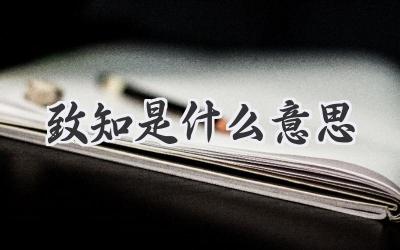 致知是什么意思